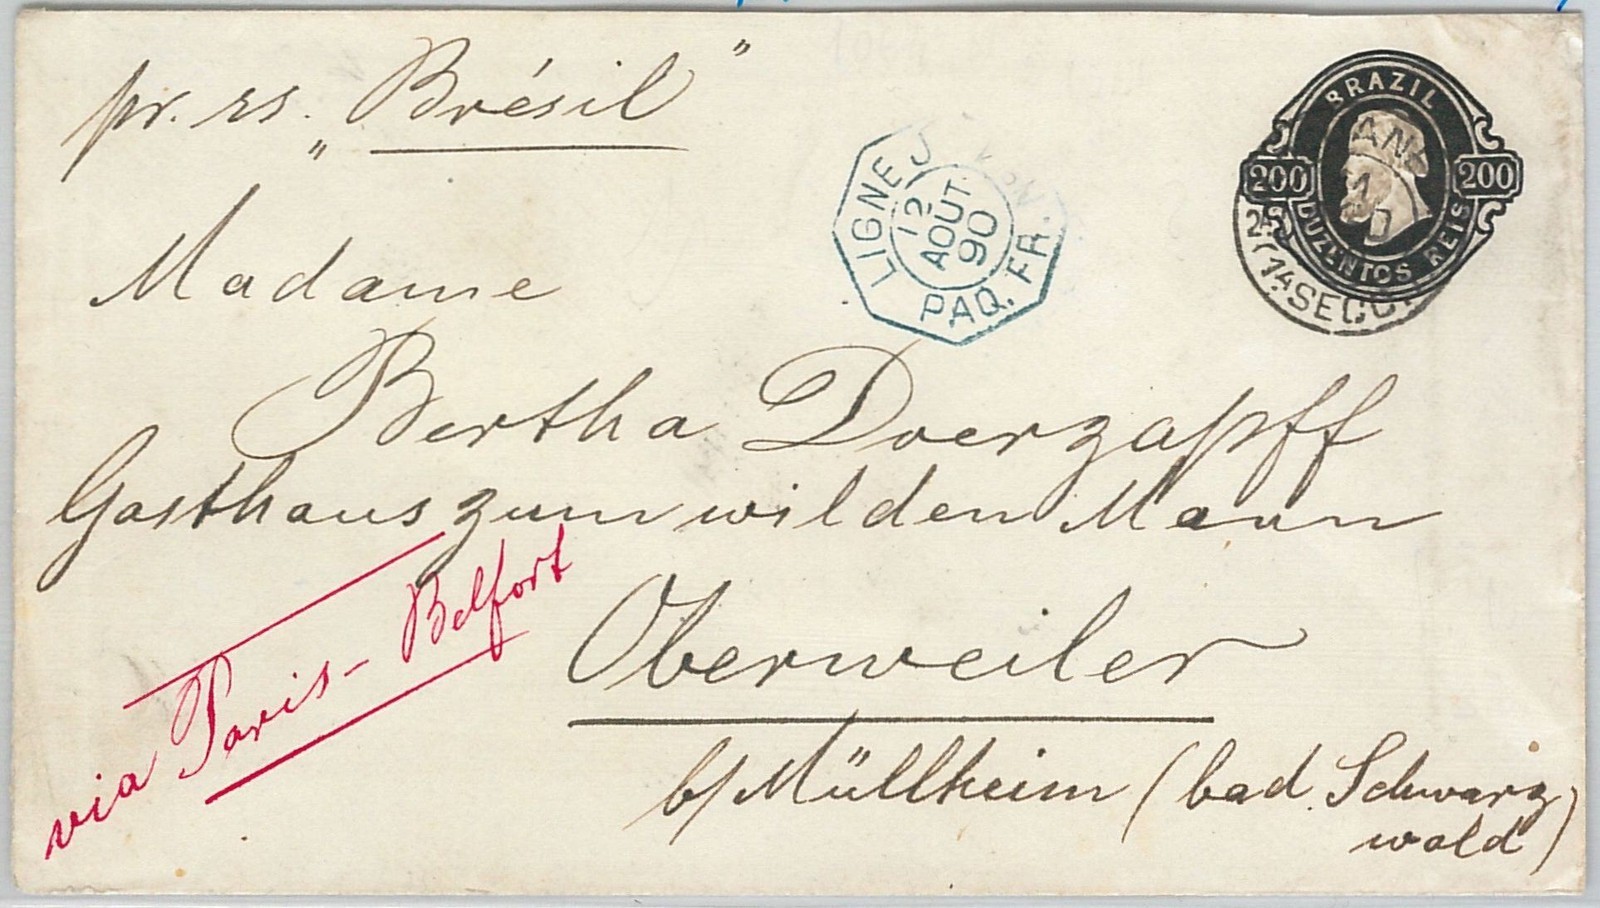 pr. rs. „Brésil”
BRAZIL
200 200
DUZENTOS REIS
1ª SECC
LIGNE J
PAQ. FR.
12
AOUT
90
Madame
Bertha Doerzapff
Gasthaus zum wilden Mann
Oberweiler
b/Müllheim (bad. Schwarz
wald)
via Paris - Belfort